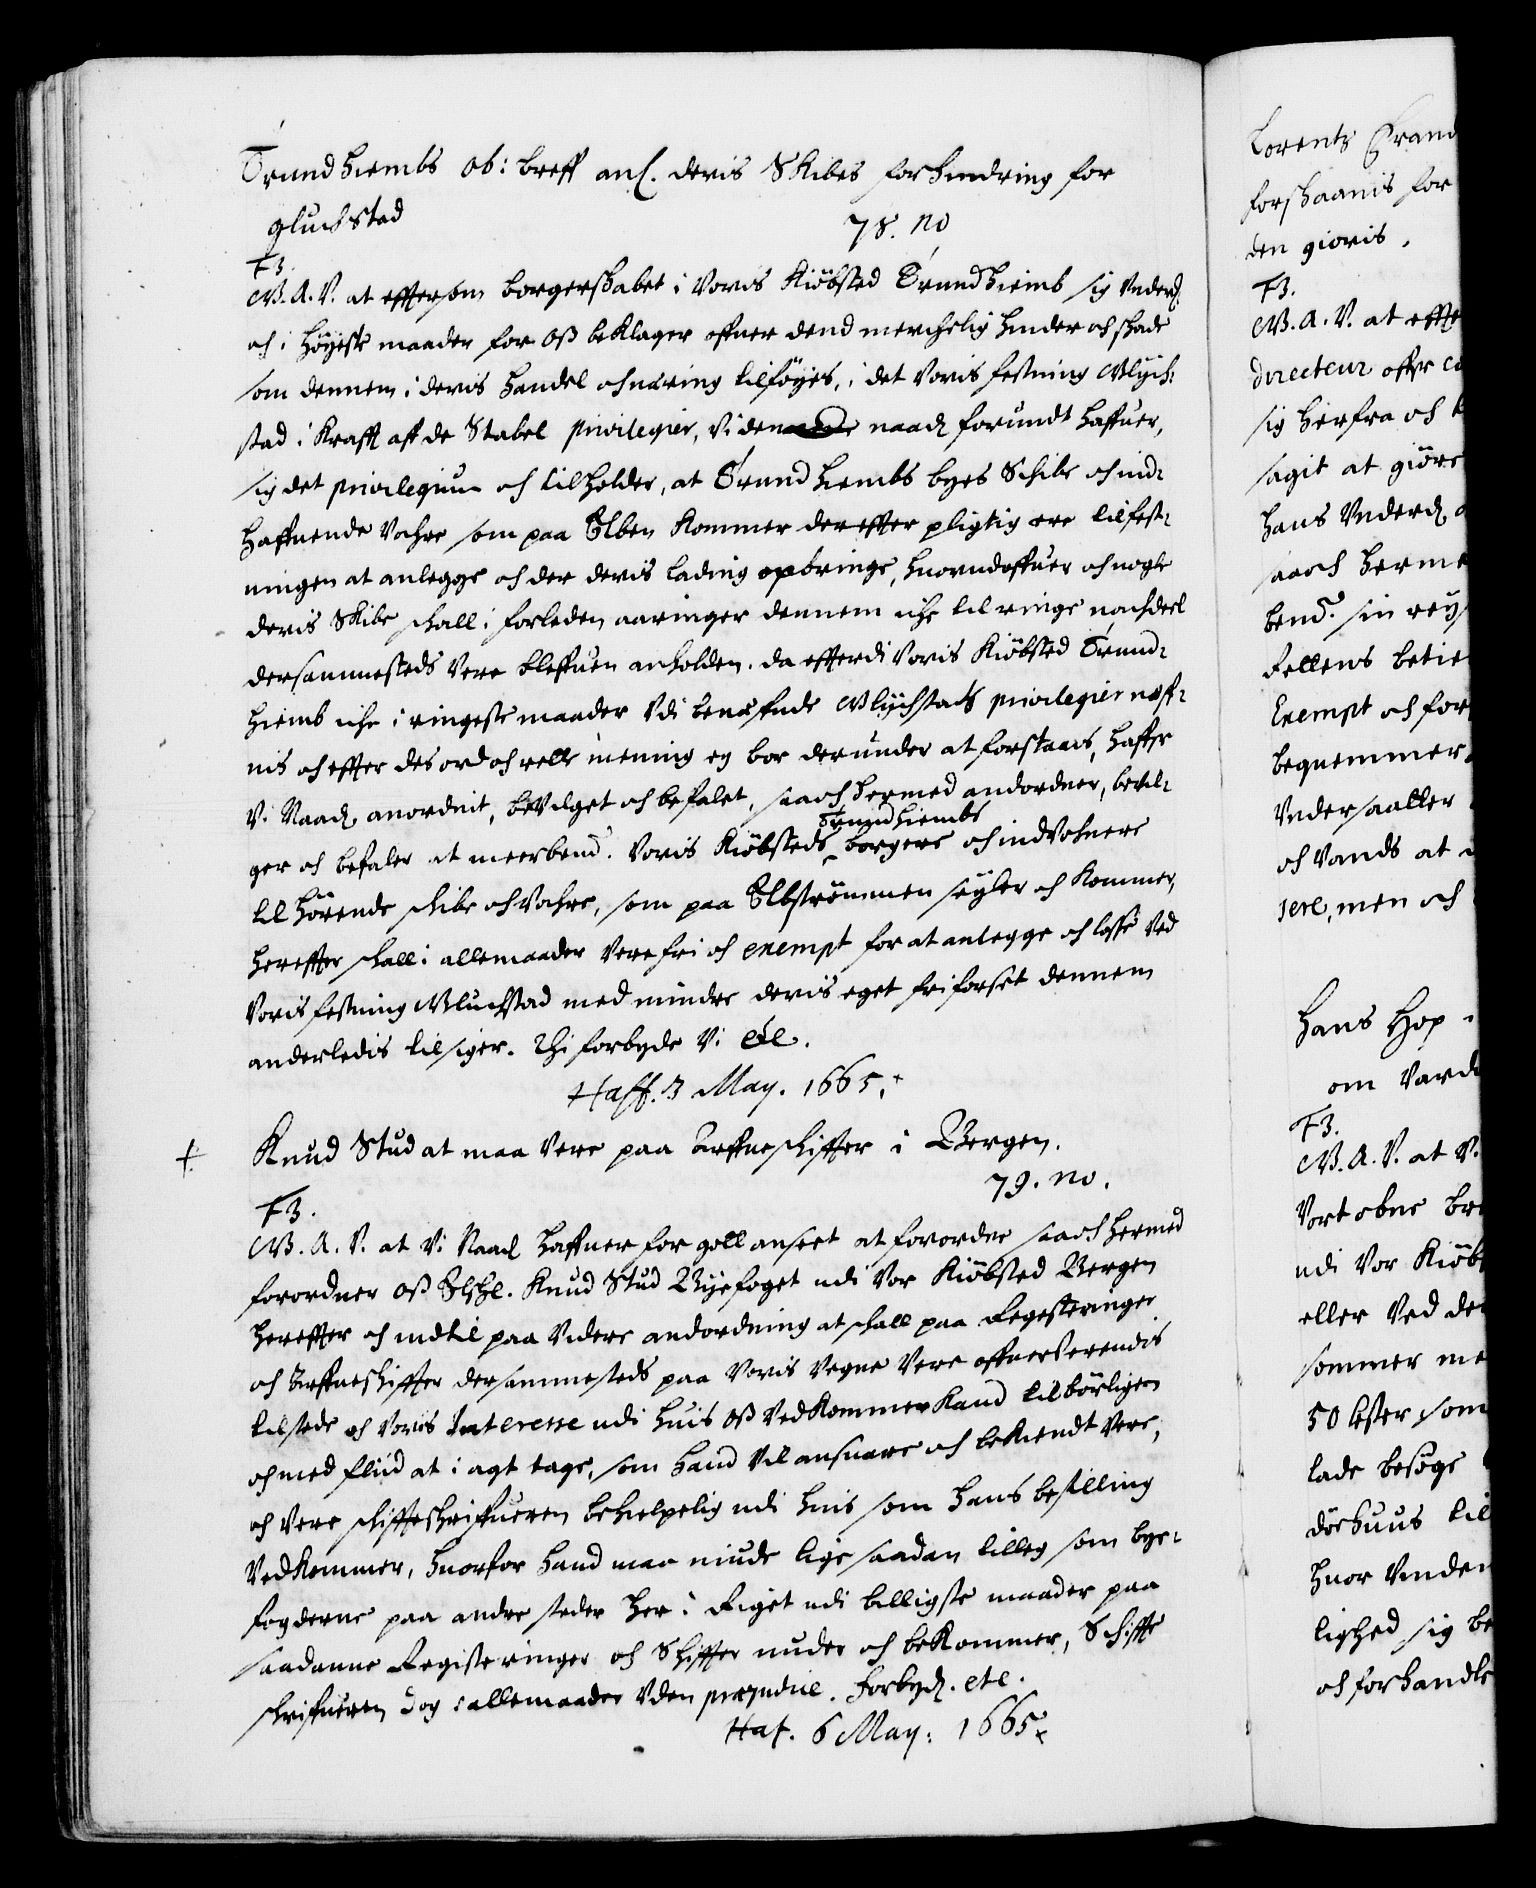 Trundhiembs ob: breff anl. deris Skibes forhindring for
Gluchstad
78. no
F3.
G. A. V. at effersom borgerskabet i Voris Kiöbsted Trundhiemb sig Underd.
och i höyeste maader for Oß beklager offuer dend merchelig hinder och skade
som dennem i deris handel och næring tilföyes, i det Voris festning Glych-
stad i Krafft aff de Stabel privilegier, Vi den naad. forundt haffuer,
sig det privilegium och tilholder, at Trundhiembs byes Schibe och ind-
haffuende Vahre som paa Elben Kommer der effter pligtig ere til fest-
ningen at anlegge och der deris lading opbringe, huorudoffuer och nogle
deris Skibe schall i forleden aaringer dennem iche til ringe nachdeel
dersammesteds Vere bleffuen anholden. da efferdi Voris Kiöbsted Trund-
hiemb iche i ringeste maader Udi benæfnde Glychstads privilegier næff-
nis och effter des ord och rette mening ey bor derunder at forstaaes, haffer
Vi Naad. anordnit, beVilget och befalet, saa och hermed andordner, bevil-
ger och befaler at meerbend. Voris Kiöbsteds Trundhiembs borgere och indVohnere
til hörende schibe och Vahre, som paa Elbströmmen seyler och Kommer,
hereffter schall i allemaader Vere fri och exempt for at anlegge och losse Ved
Voris festning Gluchstad med mindre deris eget fri forsæt dennem
anderledis tilsiger. Thi forbyde Vi etc.
Haff. 3 May. 1665.
Knud Stud at maa Vere paa Arffueschiffter i Bergen.
79. no.
F3.
G. A. V. at Vi Naad haffuer for gott anseet at forordne saa och hermed
forordner Oß Elskl. Knud Stud Byefoget udi Vor Kiöbsted Bergen
hereffter och indtil paa Videre andordning at schall paa Registeringer
och Arffueskiffter dersammesteds paa Voris Vegne Vere offuerVerendis
tilstede och Voris Interesse udi huis Oß VedKommer Kand tilbörligen
och med fliid at i agt tage, som hand Vil ansuare och bekiendt Vere,
och Vere schiffteskriffueren behielpelig udi huis som hans bestilling
VedKommer, huorfor hand maa niude lige saadan tilleg som bye-
fogderne paa andre steder her i Riget udi billigste maader paa
saadanne Registeringer och Skiffter nuder och beKommer, Schiffte
schrifueren dog i allemaader Uden præjudice. Forbyd. etc.
Haf. 6 May: 1665.
Lorents
forskaanis for
den gioris.
F3.
G. A. V. at
directeur offer
sig herfra och
sagit at giöre
hans Underd.
saa och herme
bend. sin
Fellens
Exempt och for
beqvemmer
Undersaatter
och Vands at
men och
Hans Hop
om Vard
F3.
G. A. V. at V.
Vort obne
udi Vor Kiöb
eller Ved de
sommer me
50 lester som
lade besöge
huor Unden
lighed sig be
och forhandle